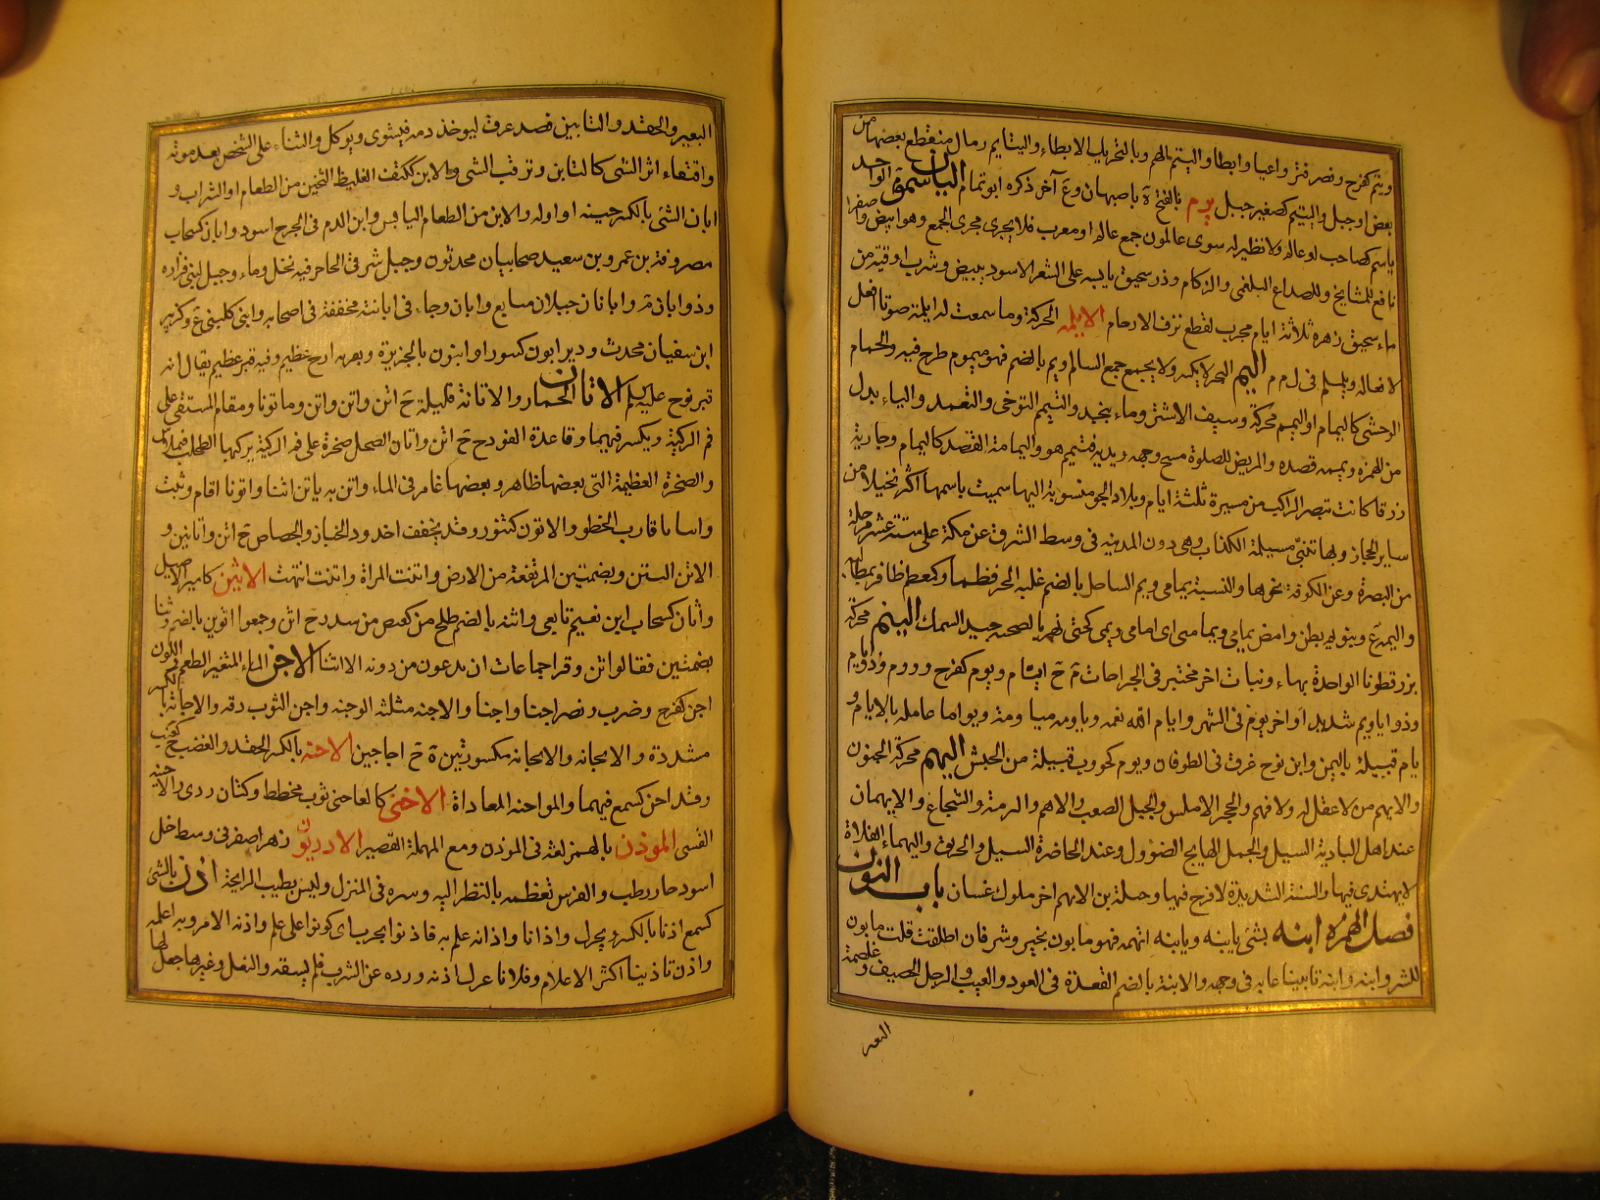 ويتم كفرح وقصر فتر واعيا وابطا واليتم الهم وبالتحريك الابطاء واليتايم رمال منقطع بعضها من
بعض او جبل واليتيم كصغير جبل يرم بالفتح ة باصبهان وع آخر ذكره ابو تمام الياسمون الواحد
ياسم كصاحب او عالم ولا نظير له سوى عالمون جمع عالم او معرب فلا يجرى مجرى الجمع وهو ابيض واصفر
نافع للمشايخ وللصداع البلغمى والزكام وذر سحيق يابسه على الشعر الاسود يبيض وشرب اوقية من
ماء سحيق زهره ثلاثة ايام مجرب لقطع نزف الارحام الايلمة الحركة وما سمعت له ايلمة صوتا افعل
لا فعاله ويلملم فى ل م م اليم البحر لا يكسر ولا يجمع جمع السالم ويم بالضم فهو ميموم طرح فيه والحمام
الوحشى كاليمام او اليمم محركة وسيف الاشتر وماء بنجد والتيمم التوخى والتعمد والياء بدل
من الهمزة ويممه قصده والمريض للصلوة مسح وجهه ويديه فتيمم هو واليمامة القصد كاليمام وجارية
زرقا كانت تبصر الراكب من مسيرة ثلثة ايام وبلاد الجو منسوبة اليها سميت باسمها اكثر نخيلا من
ساير الحجاز وبها تنبى مسيلمة الكذاب وهى دون المدينه فى وسط الشرق عن مكة على ستة عشر مرحلة
من البصرة وعن الكوفة نحوها والنسبة يمامى ويم الساحل بالضم غلبه البحر فطما وكمعظم ظافر بمطالبه
واليم ع وبنو يم بطن وامض يمامى ويمامتى اى امامى ويمى كحتى نهر بالصحنه جيد السمك الينم محركة
بزر قطونا الواحدة بهاء ونبات آخر مختبر فى الجراحات م ح ايام ويوم كفرح ووروم وذو ايام
وذو اياويم شديد او آخر يوم فى الشهر وايام الله نعمه وياومه مياومة ويواما عامله بالايام و
يام قبيلة باليمن وابن نوح غرق فى الطوفان ويوم كوب قبيلة من الحبش اليهم محركة الجنون
والايهم من لا عقل له ولا فهم والحجر الاملس والجبل الصعب والاهم والبرمة والشجاع والايهمان
عند اهل البادية السيل والجمل الهايج الضوول وعند الحاضرة السيل والحريق واليهماء الفلاة
لا يهتدى فيها والسنة الشديدة لا فرج فيها وجبلة بن الايهم آخر ملوك غسان باب النون
فصل الهمزه ابنه بشئ يابنه ويابنه اتهمه فهو مابون بخير وشر فان اطلقت قلت مابون
للشر وابنه وابنه تابينا عابه فى وجهه والابنة بالضم العقدة فى العود والعيب والرجل الحصيف وغلصمة
البعير
البعير والحقد والتابين فصد عرق ليوخذ دمه فيشوى ويوكل والثناء على الشخص بعد موته
واقتفاء اثر الشئ كالتابن وترقب الشئ والابن ككتف الغليظ الثخين من الطعام او الشراب و
ابان الشئ بالكسر حينه او اوله والابن من الطعام اليابس وابن الدم فى الجرح اسود وابان كسحاب
مصروفة بن عمرو بن سعيد صحابيان محدثون وجبل شرقى الحاجر فيه نخل وماء وجبل لبنى فزاره
وذو ابان ع وابانان جبلان متايع وابان وجاء فى ابانته مخففة فى اصحابه وابنى كلبنى ع وكزبير
ابن سفيان محدث ودير ابون كسور او ابنون بالجزيرة وبقربه ازج عظيم وفيه قبر عظيم يقال انه
قبر نوح عليه السلام الاتان الحمارة والاتانة قليلة ح اتن واتن واتن وماتونا ومقام المستقى على
فم الركية ويكسر فيهما وقاعدة الفودج ح اتن واتان الضحل صخرة على فم الركية يركبها الطحلب فتملاس
والصخرة العظيمة التى بعضها ظاهر وبعضها غامر فى الماء واتن به ياتن اتنا واتونا اقام وثبت
واتنانا قارب الخطو والاتون كتنور وقد يخفف اخدود الخباز والجصاص ح اتن واتاتين و
الاتن اليتن وبضمتين المرتفعة من الارض واتنت المراة واتنت ايتنت الاثين كامير الاصيل
واثان كسحاب ابن نعيم تابعى واثنة بالضم طلح من كعيص من سدر ح اثن وجمعوا الوثن بالضم وثنا
بضمتين فقالوا اثن وقرا جماعات ان يدعون من دونه الا اثنا الاجن الماء المتغير الطعم واللون
اجن كفرح وضرب ونصر اجنا واجنا والاجنه مثلثه الوجنه واجن الثوب دقه والاجانة بالكسر
مشددة والايجانه والايجانه مكسورتين ة ح اجاجين الاحنه بالكسر الحقد والغضب ح كعنب
وقد احن كسمع فيهما والمواحنه المعاداة الاخنى كالعاحنى ثوب مخطط وكتان ردى والاخنية
القسى الموذن بالهمز لغه فى الموذن ومع المهملة القصير الادريون زهر اصفر فى وسطه خمل
اسود حار رطب والفرس تعظمه بالنظر اليه ونثره فى المنزل وليس بطيب الرايحة اذن بالشئ
كسمع اذنا بالكسر ويحرك واذانا واذانه علم به فاذنوا بحرب اى كونوا على علم واذنه الامر وبه اعلمه
واذن تاذينا اكثر الاعلام وفلانا عرك اذنه ورده عن الشرب فلم يسقه والنعل وغيرها جعل لها